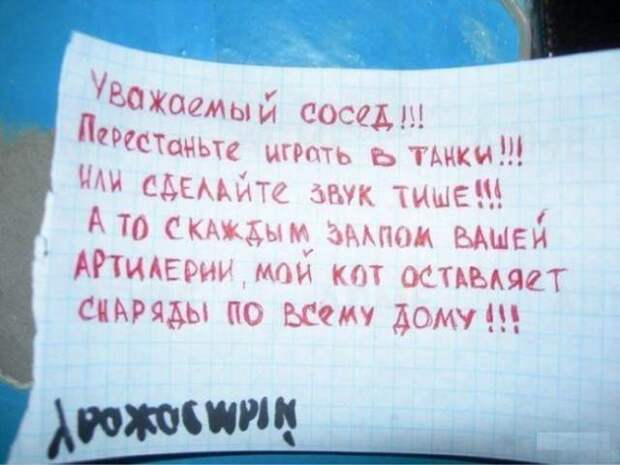 Уважаемый сосед!!!
Перестаньте играть в танки!!!
или сделайте звук тише!!!
А то с каждым залпом вашей
артилерии, мой кот оставляет
снаряды по всему дому!!!
Уважаемый